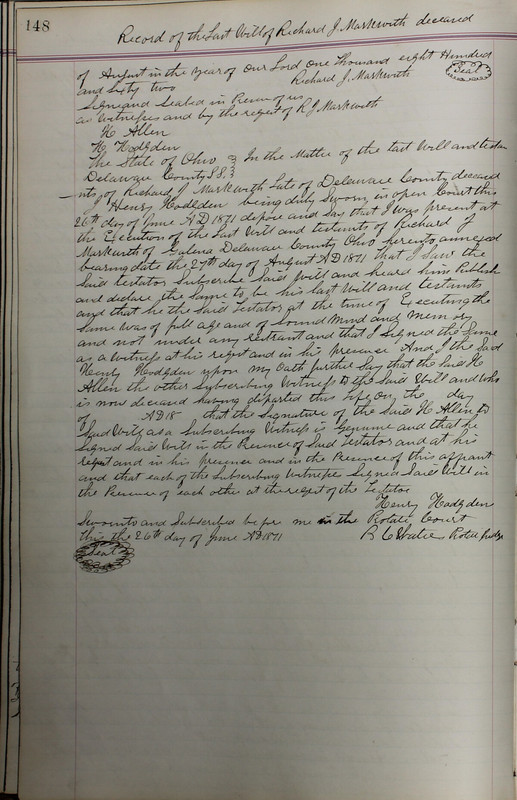 148
Record of the Last Will of Richard J. Markwith deceased
of August in the year of Our Lord One Thousand eight Hundred
and Sixty two Richard J. Markwith Seal
Signed and Sealed in Presence of us
as Witnesses and by the request of R J Markwith
H Allen
H. Hodgden
The State of Ohio } In the Matter of the last Will and testa
Delaware County S.S. }
nts of Richard J Markwith Late of Delaware County deceased
I Henry Hodgden being duly Sworn in open Court this
26th day of June AD 1871 depose and Say that I was present at
the Execution of the Last Will and testants of Richard J
Markwith of Galena Delaware County Ohio hereunto annexed
bearing date the 27th day of August AD 1871 that I Saw the
Said testator Subscribe Said Will and heard him Publish
and declare the Same to be his last Will and testants
and that he the Said Testator at the time of Executing the
Same was of full age and of Sound Mind and Memory
and not under any restraint and that I Signed the Same
as a Witness at his request and in his presence And I the Said
Henry Hodgden upon my Oath further Say that the Said H
Allen the other Subscribing Witness to the Said Will and who
is now deceased having departed this Life on the day
of AD 18 that the Signature of the Said H Allen to
Said Will as a Subscribing Witness is Genuine and that he
Signed Said Will in the Presence of Said Testator and at his
request and in his presence and in the Presence of this affiant
and that each of the Subscribing Witnesses Signed Said Will in
the Presence of each other at the request of the Testator
Henry Hodgden
Sworn to and Subscribed before me in the Probate Court
this the 26th day of June AD 1871
Seal